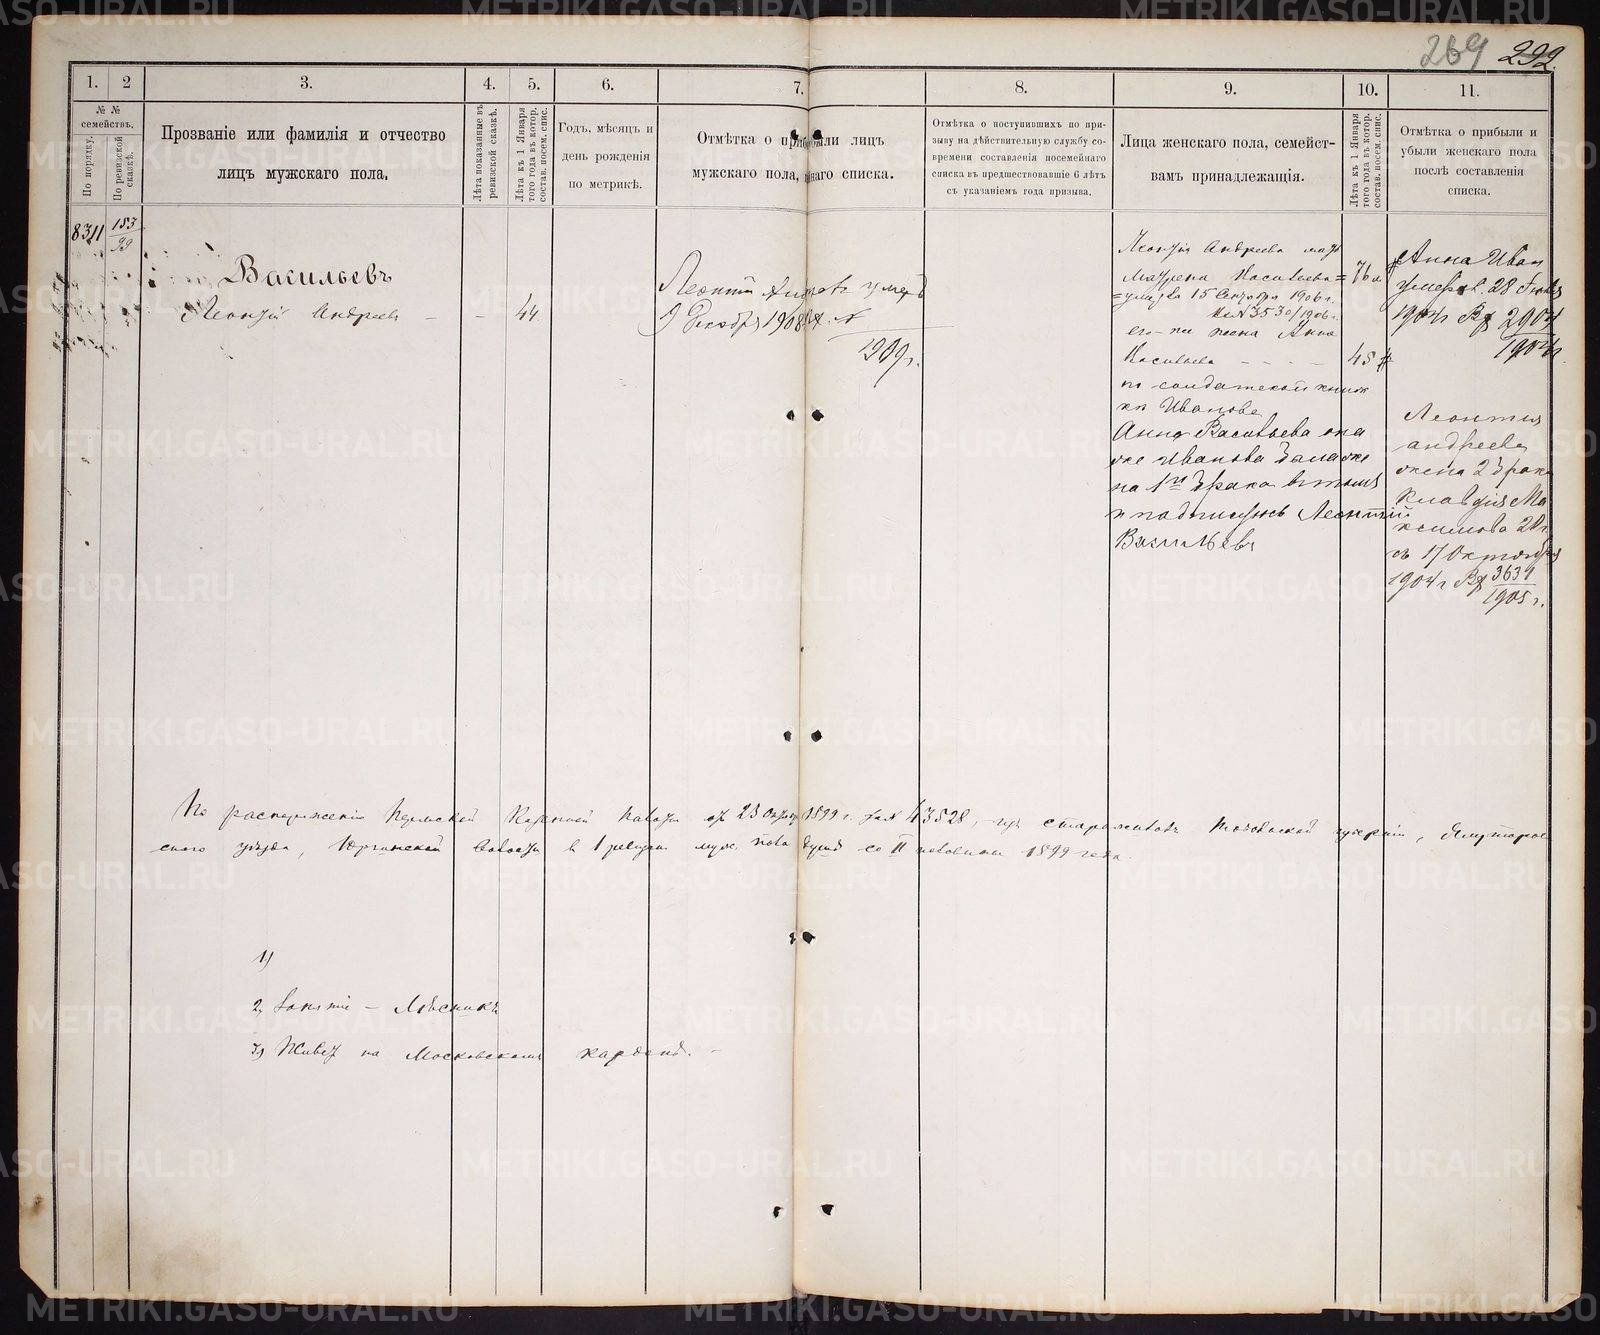 269 292.
1. 2 3. 4. 5. 6. 7. 8. 9. 10. 11.
№ №
семействъ.
По порядку.
По ревизской сказкѣ.
Прозваніе или фамилія и отчество
лицъ мужскаго пола.
Лѣта показанные въ
ревизской сказкѣ.
Лѣта къ 1 Января
того года въ котор.
состав. посем. спис.
Годъ, мѣсяцъ и
день рожденія
по метрикѣ.
Отмѣтка о при были лицъ
мужскаго пола, наго списка.
Отмѣтка о поступившихъ по при-
зыву на дѣйствительную службу со-
времени составленія посемейнаго
списка въ предшествовавшіе 6 лѣтъ
съ указаніемъ года призыва.
Лица женскаго пола, семейст-
вамъ принадлежащія.
Лѣта къ 1 Января
того года въ котор.
состав. посем. спис.
Отмѣтка о прибыли и
убыли женскаго пола
послѣ составленія
списка.
8311 153
99
Васильевъ
Леонтій Андреев — — 44
Леонтій Андреев умеръ
9 Декабря 1908 г. Вх. №
1909 г.
Леонтія Андреева мать
Васильева = 76
15 Сентября 1906 г.
№ 3530/1906 г.
его-же жена Анна
Васильева - - - - 45 #
по солдатской книж
ке Иванова
Анна Васильева она
же Иванова
на 1м брака
и подписуюсь Леонтий
Васильевъ
# Анна Иван
умерла 28 Июня
1904 г Вх 2904
1904 г.
Леонтия
андреева
жена 2 брака
Клавдия Ма
ксимова 20 л
съ 17 Октября
1904 г Вх 3631
1905 г.
По распоряженію Пермской Казенной Палаты отъ 23 1899 г. за № 43528, изъ старожиловъ Тобольской губерніи, Ялуторов
скаго уѣзда, Юргинской волости въ 1 муж. пола душѣ со II половины 1899 года.
1)
2) Занятіе — Лѣсникъ
3) Живетъ на Московскомъ кардонѣ. —
METRIKI.GASO-URAL.RU